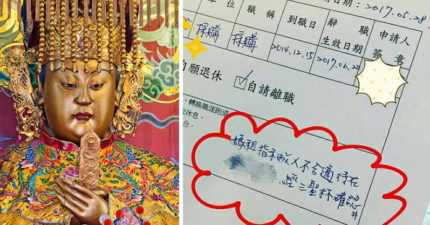 日期:2017.05.28.
位 職稱 到職日 辭職 申請人
生效日期 簽章
採購 採購 2014.12.15 2017.06.20
自願退休 自請離職
媽祖指示敝人不合適待在
經三聖杯確認